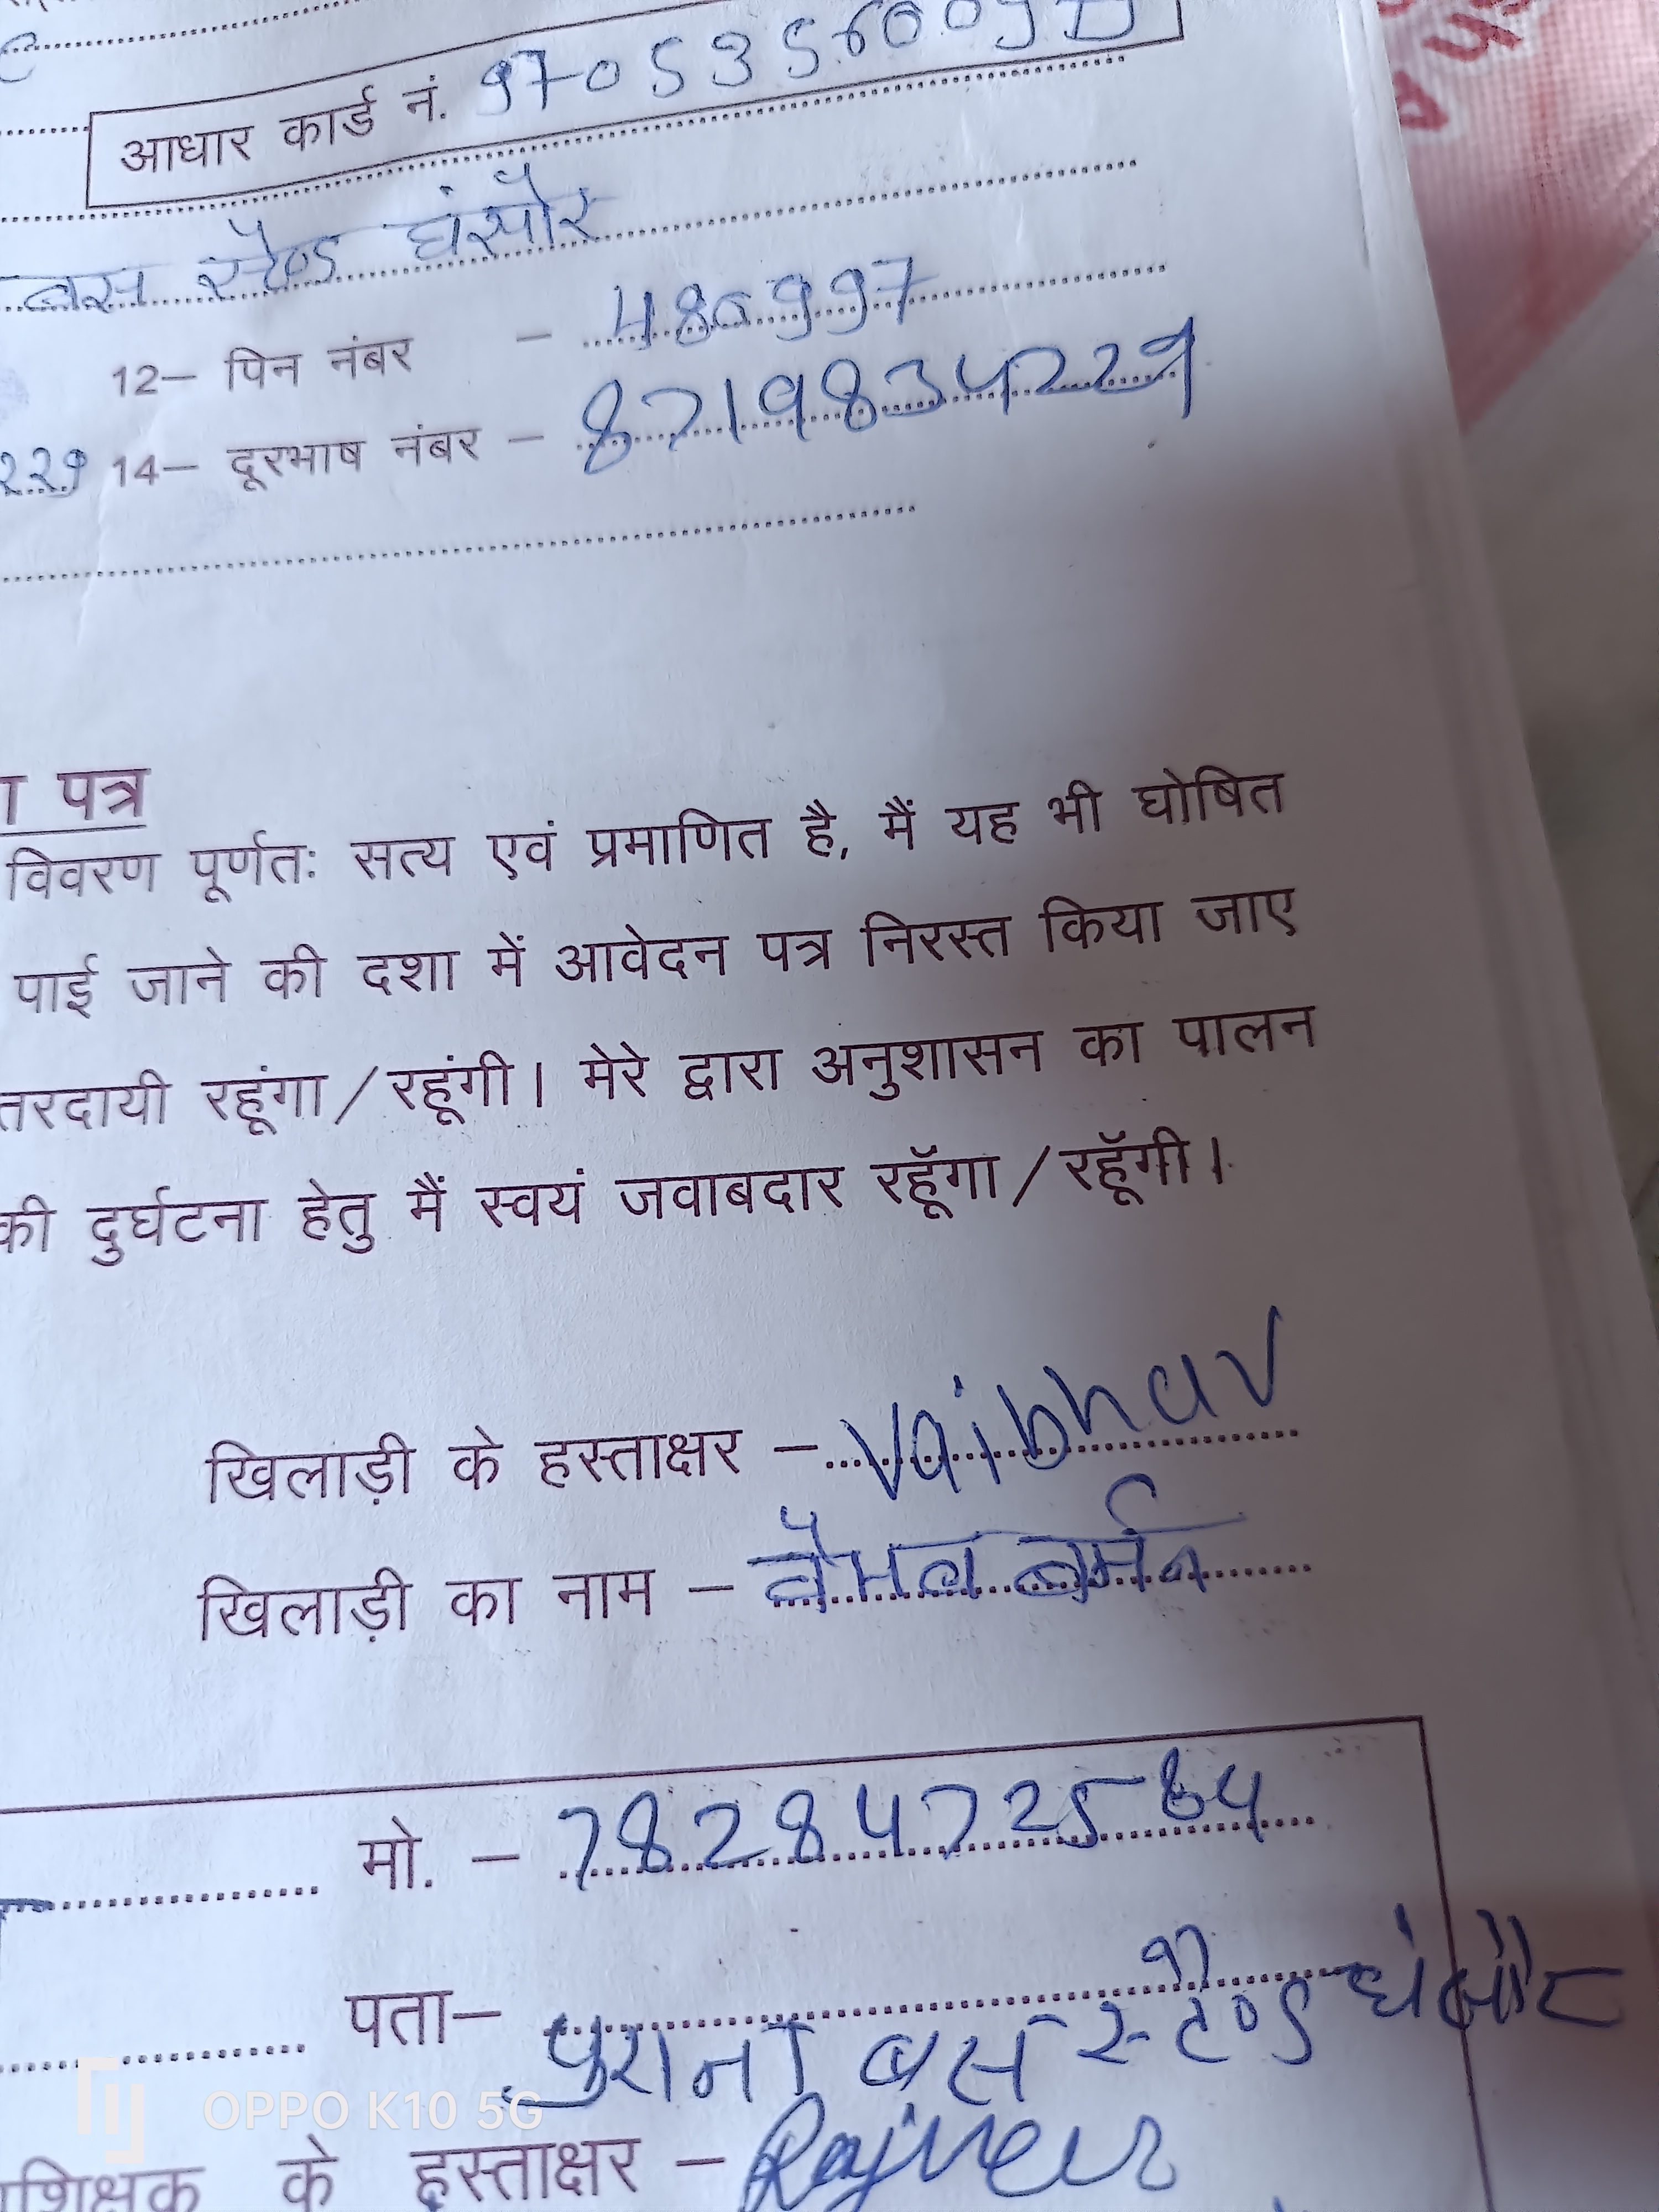 आधार कार्ड नं. 9705356009
बस स्टैण्ड घंसौर
12— पिन नंबर – 480997
229 14— दूरभाष नंबर – 8719834229
पत्र
विवरण पूर्णतः सत्य एवं प्रमाणित है, मैं यह भी घोषित
पाई जाने की दशा में आवेदन पत्र निरस्त किया जाए
तरदायी रहूंगा/रहूंगी। मेरे द्वारा अनुशासन का पालन
की दुर्घटना हेतु मैं स्वयं जवाबदार रहूॅगा/रहूॅगी।
खिलाड़ी के हस्ताक्षर – Vaibhav
खिलाड़ी का नाम – वैभव बर्मन
मो. – 7828472584
पता– पुराना बस स्टैण्ड घंसौर
शिक्षक के हस्ताक्षर – Rajveer
OPPO K10 5G